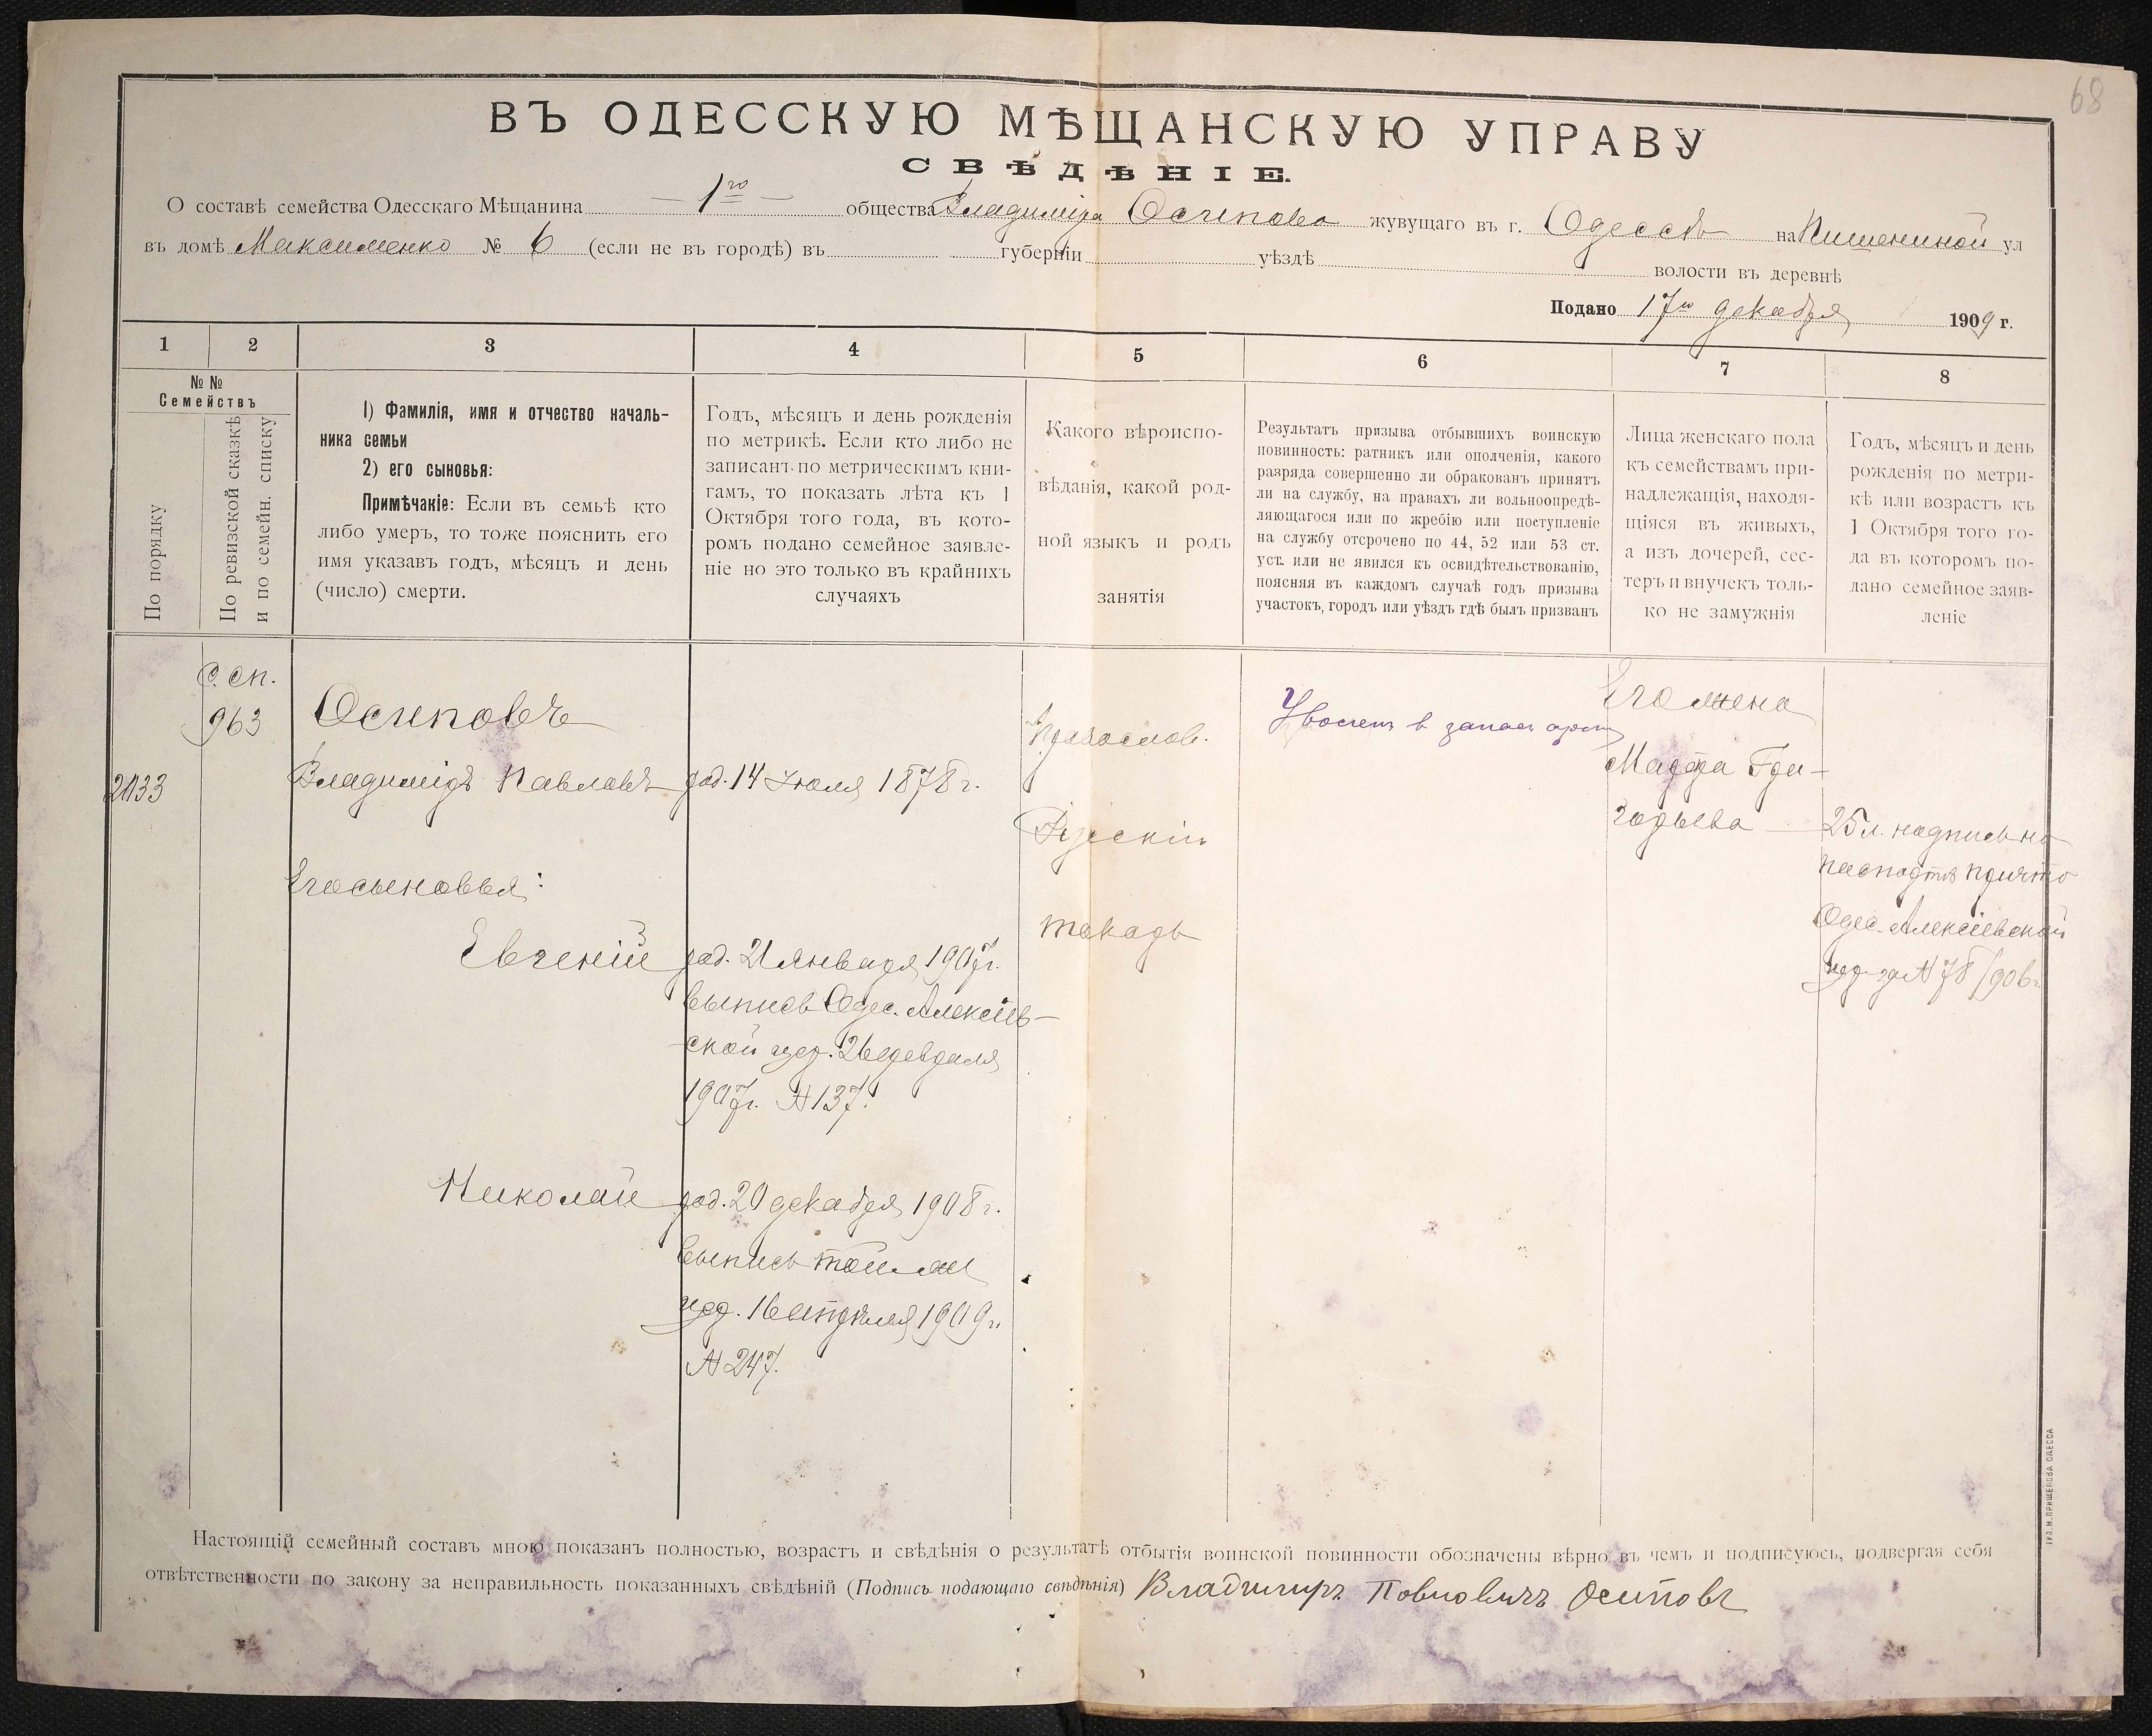 68
ВЪ ОДЕССКУЮ МѢЩАНСКУЮ УПРАВУ
СВѢДѢНІЕ.
О составѣ семейства Одесскаго Мѣщанина — 1го — общества Владиміра Осипова жувущаго въ г. Одессѣ на ул
въ домѣ Максименко № 6 (если не въ городѣ) въ губерніи уѣздѣ волости въ деревнѣ
Подано 17го декабря 1909 г.
1 2 3 4 5 6 7 8
№ №
Семействъ
По порядку
По ревизской сказкѣ
и по семейн. списку
1) Фамилія, имя и отчество началь-
ника семьи
2) его сыновья:
Примѣчакіе: Если въ семьѣ кто
либо умеръ, то тоже пояснить его
имя указавъ годъ, мѣсяцъ и день
(число) смерти.
Годъ, мѣсяцъ и день рожденія
по метрикѣ. Если кто либо не
записанъ по метрическимъ кни-
гамъ, то показать лѣта къ 1
Октября того года, въ кото-
ромъ подано семейное заявле-
ніе но это только въ крайнихъ
случаяхъ
Какого вѣроиспо-
вѣданія, какой род-
ной языкъ и родъ
занятія
Результатъ призыва отбывшихъ воинскую
повинность: ратникъ или ополченія, какого
разряда совершенно ли обракованъ принятъ
ли на службу, на правахъ ли вольноопредѣ-
ляющагося или по жребію или поступленіе
на службу отсрочено по 44, 52 или 53 ст.
уст. или не явился къ освидѣтельствованію,
поясняя въ каждомъ случаѣ годъ призыва
участокъ, городъ или уѣздъ гдѣ былъ призванъ
Лица женскаго пола
къ семействамъ при-
надлежащія, находя-
щіяся въ живыхъ,
а изъ дочерей, сес-
теръ и внучекъ толь-
ко не замужнія
Годъ, мѣсяцъ и день
рожденія по метри-
кѣ или возрастъ къ
1 Октября того го-
да въ котором по-
дано семейное заяв-
леніе
2133
С. сп.
963
Осиповъ
Владиміръ Павловъ
род. 14 Іюля 1878 г.
Его сыновья:
Евгеній
род. 21 января 1907 г.
выпись Одес. Алексіев-
ской цер. 26 февраля
1907 г. № 137.
Николай
род. 20 декабря 1908 г.
выпись той же
цер. 16 апрѣля 1909 г.
№ 247.
Православ.
Русскій
токарь
в запас арм
Его жена
Марфа Гри-
горьева
25 л. надпись на
паспортѣ причта
Одес. Алексіевской
цер. за № 78/906 г.
Настоящій семейный составъ мною показанъ полностью, возрастъ и свѣдѣнія о результатѣ отбытія воинской повинности обозначены вѣрно въ чемъ и подписуюсь, подвергая себя
отвѣтственности по закону за неправильность показанныхъ свѣдѣній (Подпись подающаго свѣдѣнія) Владимиръ Повловичъ Осиповъ
ТИП. М. ПРИЩЕПОВА ОДЕССА